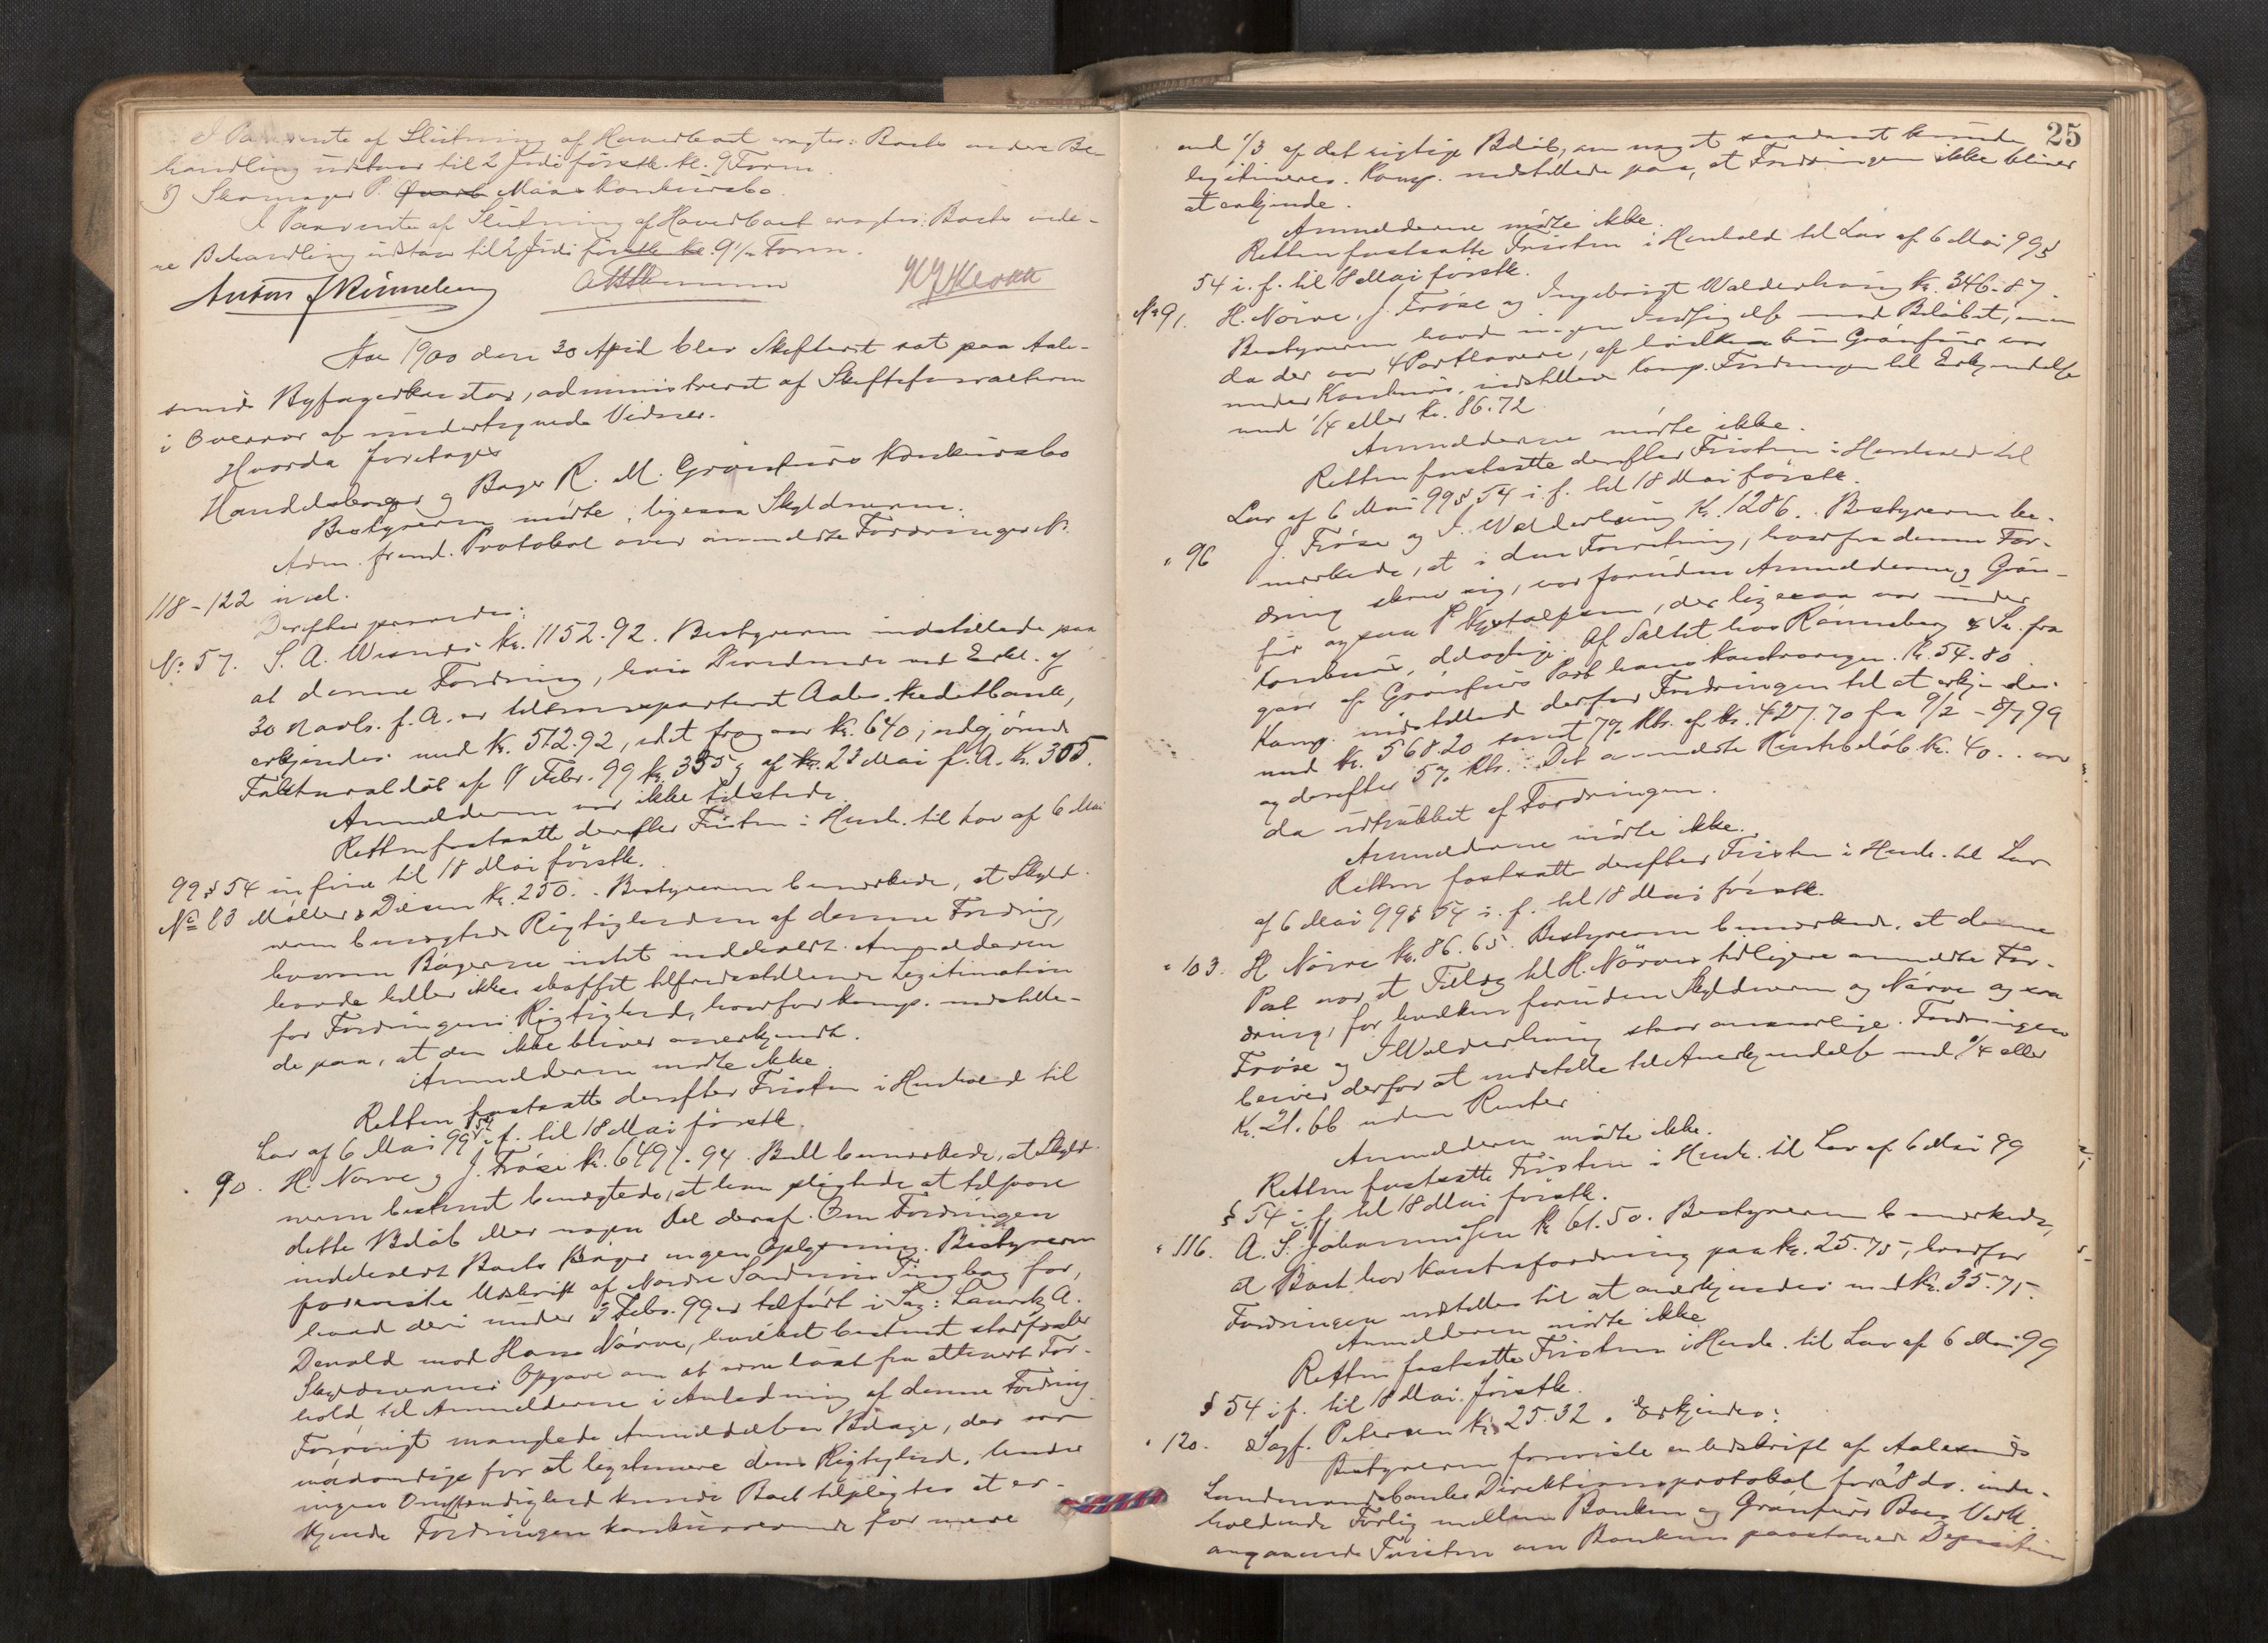 I Paavente af Slutning af Hovedboet vragtes: Boets videre Be-
handling udstaar til 2 Juli förstk. kl. 9 Form.
8) Skomager P. Maans Konkursbo.
I Paavente af Slutning af Hovedboet Boets vide-
re Behandling udstaar til 2 Juli förstk. kl. 9 1/2 Form.
Anton J Rönneberg
Aar 1900 den 30 April blev Skifteret sat paa Aale-
sunds Byfogedkontor, administreret af Skifteforvalteren
i Overvær af undertegnede Vidner.
Hvorda foretoges
Handelsborger og Bager R. M. Grönfurs Konkursbo
Bestyreren mödte, ligesaa Skyldneren.
Adm. fremL. Protokol over anmeldte Fordringer No
118-122 incl.
Derefter prövedes:
No 57. S. A. Kr. 1152.92. Bestyreren indstillede paa
at denne Fordring, hvis ved Erkl. af
30 Novbr. f. A. er transporteret Aales. Kreditbank,
erkjendes med Kr. 512.92, idet fragaar Kr. 640, udgjörende
Fakturabelöb af 9 Febr. 99 Kr. 335 og af 23 Mai f. A. Kr. 305.
Anmelderen var ikke tilstede
Retten fastsatte derefter Fristen i Henh. til Lov af 6 Mai
99 § 54 in fine til 18 Mai förstk.
No 83 Möller & Diesen Kr. 250. Bestyreren bemærkede, at Skyld-
neren benægtede Rigtigheden af denne Fordring,
hvorom Bögerne intet indeholdt. Anmelderen
havde heller ikke skaffet tilfredsstillende Legitimation
for Fordringens Rigtighed, hvorfor Komp. indstille-
de paa, at den ikke bliver anerkjendt.
Anmelderen mødte ikke
Retten fastsatte derefter Fristen i Henhold til
Lov af 6 Mai 99 § 54 i. f. til 18 Mai förstk.
" 90. H. Nörve og J. Fröse Kr. 6491.94. Best. bemærkede, at Skyld-
neren bestemt benægtede, at han pligtede at tilsvare
dette Belöb eller nogen Del deraf. Om Fordringen
indeholdt Boets Böger ingen Oplysning. Bestyreren
foreviste Udskrift af Nordre Söndmörs Tingbog for,
hvad deri under 3 Febr. 99 er tilfört i Sag: Lauritz A.
Devold mod Hans Nörve, hvilket bestemt stadfæster
Skyldnerens Opgave om at være löst fra ethvert For-
hold til Anmelderne i Anledning af denne Fordring
Forövrigt manglede Anmeldelsen Bilage, der var
nödvendige for at legitimere dens Rigtighed. Under
ingen Omstændighed kunde Boet tilpligtes at er-
kjende Fordringen konkurrerende for mere
25
end 1/3 af det rigtige Belöb, om noget saadant kunde
legitimeres. Komp. indstillede paa, at Fordringen ikke bliver
at erkjende.
Anmelderne mödte ikke.
Retten fastsatte Fristen i Henhold til Lov af 6 Mai 99 §
54 i. f. til 18 Mai förstk.
No 91. H. Nörve, J. Fröse og Ingebrigt Walderhaug Kr. 346.87.
Bestyreren havde ingen Indsigelse mod Belöbet, men
da der var 4 Parthavere, af hvilke kun Grönfur var
under Konkurs, indstillede Komp. Fordringen til Erkjendelse
med 1/4 eller Kr. 86.72
Anmelderne mödte ikke.
Retten fastsatte derefter Fristen i Henhold til
Lov af 6 Mai 99 § 54 i. f. til 18 Mai förstk.
" 96 J. Fröse og I. Walderhaug Kr. 1286.. Bestyreren be-
mærkede, at i den Forretning, hvorfra denne For-
dring skrev sig, var foruden Anmelderne og Grön-
fur ogsaa P., der ligesaa var under
Konkurs, delagtige. Af Saltet hos Rönneberg & Sn. fra
gaar af Grönfurs Part hans Kr. 54.80
Komp. indstilled derfor Fordringen til at erkjendes
med Kr. 568.20 samt 7% Rtr. af Kr. 427.70 fra 9/2 - 8/7 99
og derefter 5% Rtr. Det anmeldte Rentebelöb Kr. 40.. var
da udtrukket af Fordringen.
Anmelderne mödte ikke.
Retten fastsatte derefter Fristen i Henh. til Lov
af 6 Mai 99 § 54 i. f. til 18 Mai förstk.
" 103. H. Nörve Kr. 86.65. Bestyreren bemærkede, at denne
Post var et Tillæg til H. Nörves tidligere anmeldte For-
dring, for hvilken foruden Skyldneren og Nörve ogsaa
Fröse og I Walderhaug staar ansvarlige. Fordringen
bliver derfor at indstille til Anerkjendelse med 1/4 eller
Kr. 21.66 uden Renter
Anmelderen mödte ikke.
Retten fastsatte Fristen i Henh. til Lov af 6 Mai 99
§ 54 i. f. til 18 Mai förstk.
" 116. A. S. Johannessen Kr 61.50. Bestyreren bemærkede,
at Boet har Kontrafordring paa Kr. 25.75, hvorfor
Fordringen indstilles til at anerkjendes med Kr. 35.75.
Anmelderen mödte ikke
Retten fastsatte Fristen i Henh. til Lov af 6 Mai 99
§ 54 i. f. til 18 Mai förstk.
" 120. Sagf. Petersen Kr. 25.32. Erkjendes:
Bestyreren foreviste en Udskrift af Aalesunds
Landmandsbanks Direktionsprotokol for 28 ds. inde-
holdende Forlig mellem Banken og Grönfurs Bo
angaaende Tvisten om Bankens paastaaede Deposition